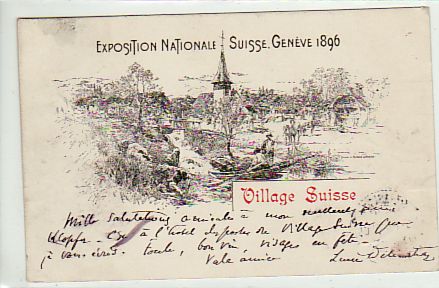 EXPOSITION NATIONALE SUISSE. GENÈVE 1896
Village Suisse
Mille salutations amicales à mon
Klopfer. C'est à l'hotel des postes du Village Suisse que
je vous écris. foule, bon vin, visages en fête.
Vale amice